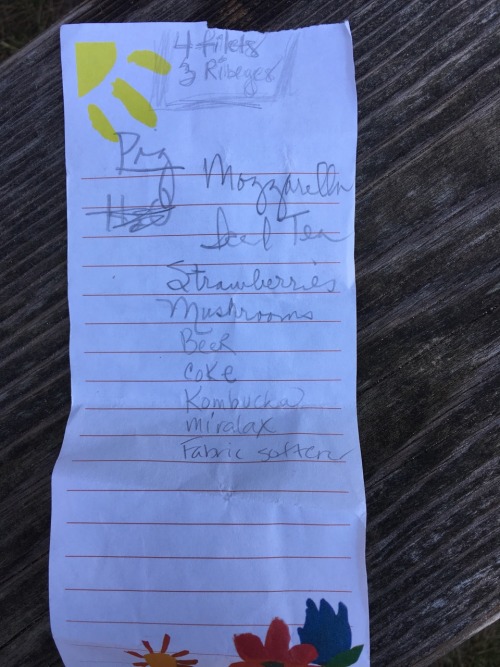 4 filets
3 Ribeyes
Mozzarella
Iced Tea
Strawberries
Mushrooms
Beer
Coke
Kombucha
miralax
Fabric softener